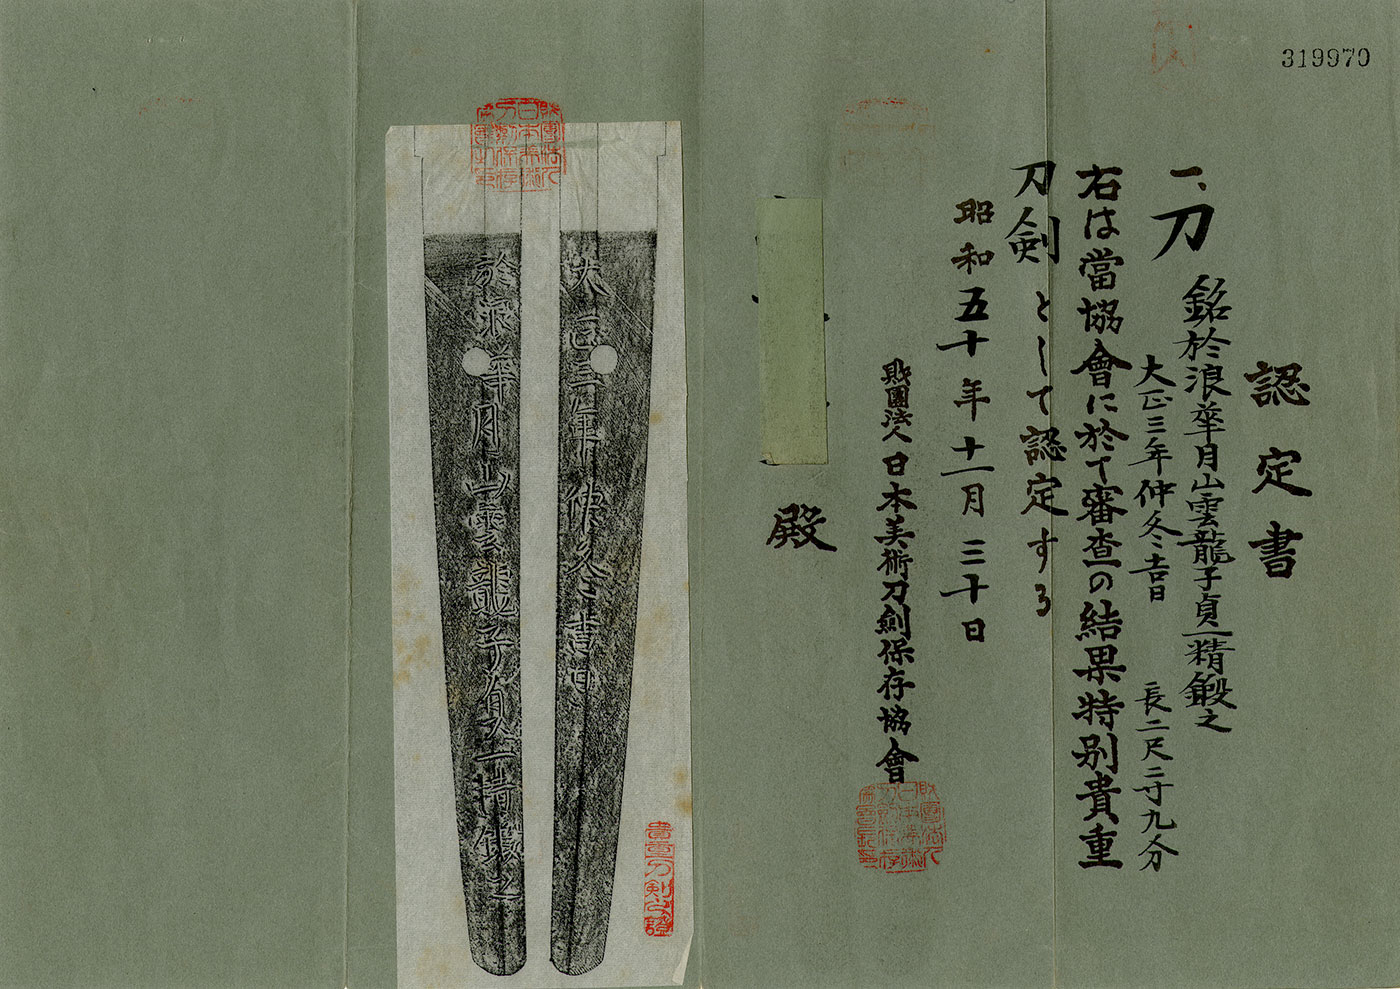 319970
認定書
一、刀 銘於浪華月山雲龍子貞一精鍛之
大正三年仲冬吉日 長二尺二寸九分
右は當協會に於て審査の結果特別貴重
刀剣として認定する
昭和五十年十一月三十日
財團法人日本美術刀剣保存協會
殿
大正三年仲冬吉日
於浪華月山雲龍子貞一精鍛之
貴重刀剣之證